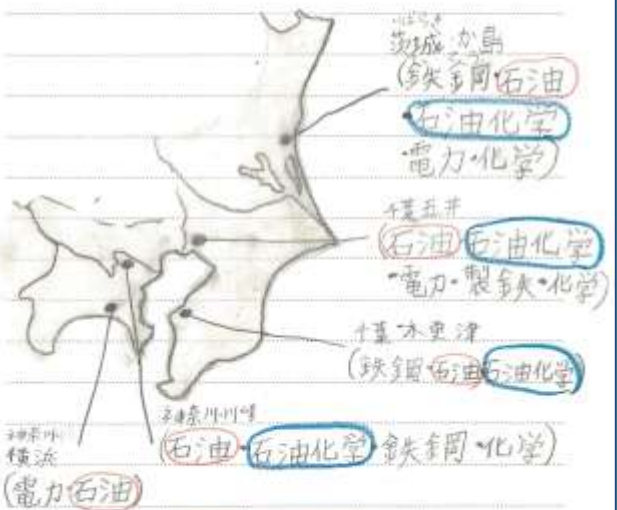 いばらき
茨城 か島
(鉄鋼・石油
・石油化学
・電力・化学)
千葉五井
(石油・石油化学
・電力・製鉄・化学)
千葉・木更津
(鉄鋼・石油・石油化学)
神奈川川崎
(石油・石油化学・鉄鋼・化学)
神奈川
横浜
(電力・石油)